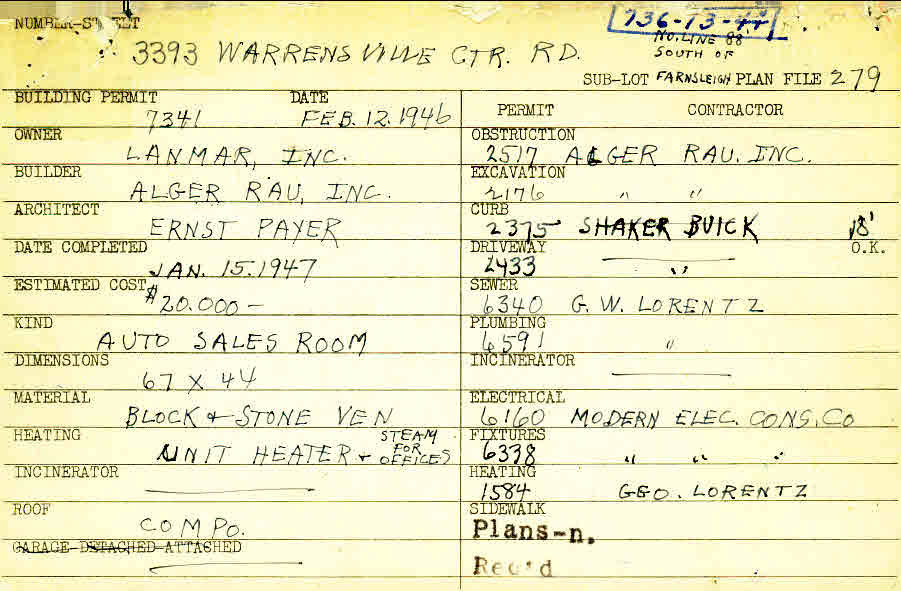 NUMBER-STREET
736-73-44
3393 WARRENSVILLE CTR. RD.
NO. LINE 88
SOUTH OF
SUB-LOT FARNSLEIGH PLAN FILE 279
BUILDING PERMIT DATE
7341 FEB. 12. 1946
OWNER
LANMAR, INC.
BUILDER
ALGER RAU, INC.
ARCHITECT
ERNST PAYER
DATE COMPLETED
JAN. 15. 1947
ESTIMATED COST
$20.000 —
KIND
AUTO SALES ROOM
DIMENSIONS
67 X 44
MATERIAL
BLOCK + STONE VEN
HEATING
UNIT HEATER + STEAM FOR OFFICES
INCINERATOR
ROOF
COMPO.
GARAGE DETACHED ATTACHED
PERMIT CONTRACTOR
OBSTRUCTION
2517 ALGER RAU. INC.
EXCAVATION
2176 " "
CURB
2375 SHAKER BUICK 18'
DRIVEWAY O.K.
2433 "
SEWER
6340 G. W. LORENTZ
PLUMBING
6591 "
INCINERATOR
ELECTRICAL
6160 MODERN ELEC. CONS. CO
FIXTURES
6338 " " "
HEATING
1584 GEO. LORENTZ
SIDEWALK
Plans-n.
Rec'd